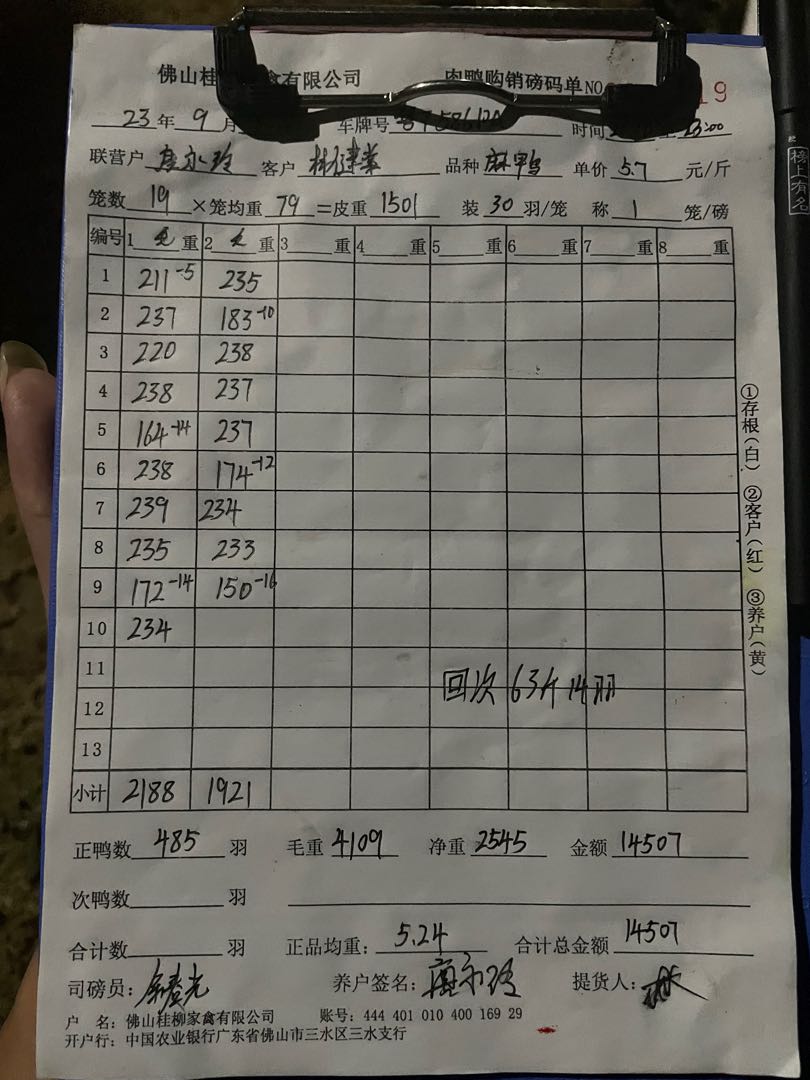 佛山桂 家禽有限公司 肉鸭购销磅码单NO 19
23年 9月 车牌号 时间 23:00
联营户 客户 品种 麻鸭 单价 5.7 元/斤
笼数 19 ×笼均重 79 =皮重 1501 装 30 羽/笼 称 1 笼/磅
编号 1 重 2 重 3 重 4 重 5 重 6 重 7 重 8 重
1 211-5 235
2 237 183-10
3 220 238
4 238 237
5 164-14 237
6 238 174-12
7 239 234
8 235 233
9 172-14 150-16
10 234
11
回次 63斤 14羽
12
13
小计 2188 1921
正鸭数 485 羽 毛重 4109 净重 2545 金额 14507
次鸭数 羽
合计数 羽 正品均重: 5.24 合计总金额 14507
司磅员: 养户签名: 提货人: 林
户 名: 佛山桂柳家禽有限公司 账号: 444 401 010 400 169 29
开户行: 中国农业银行广东省佛山市三水区三水支行
①存根(白) ②客户(红) ③养户(黄)
榜上有名